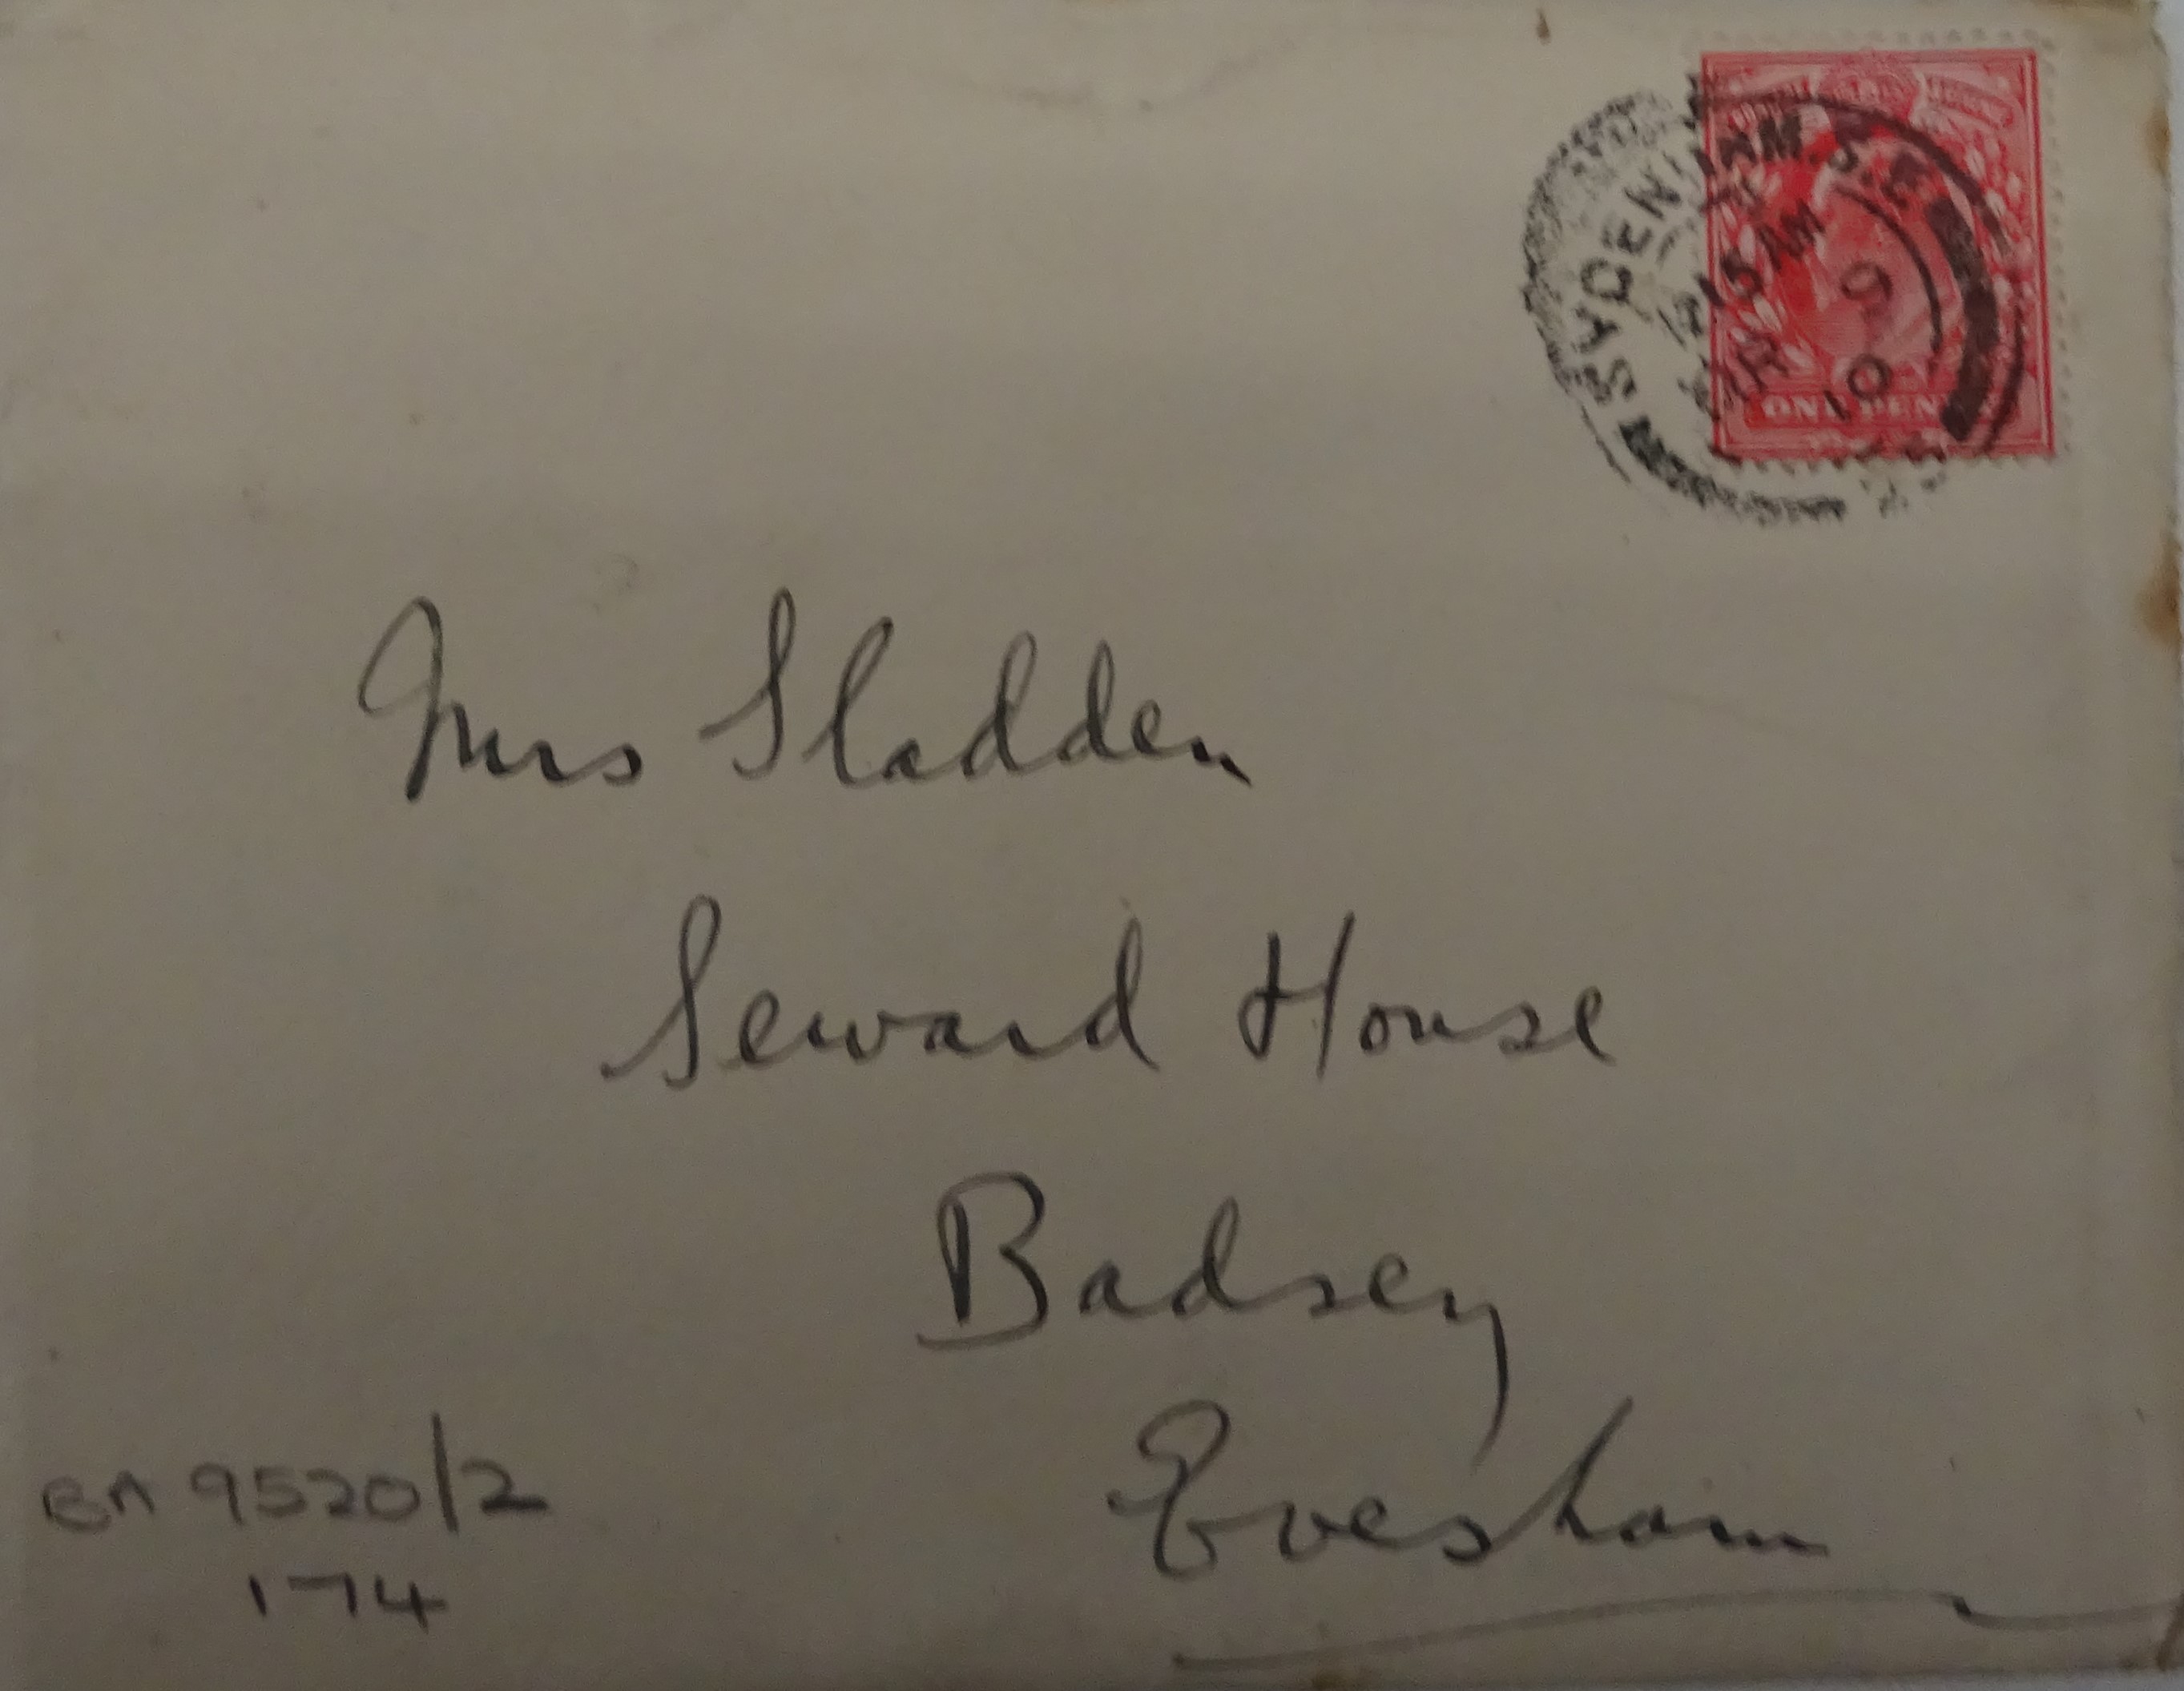 SYDENHAM. S.E
15 AM
9
10
ONE PEN
Mrs Sladden
Seward House
Badsey
Evesham
BA 9520/2
174